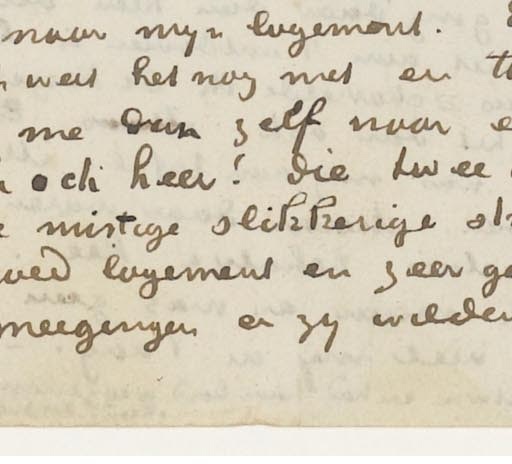 naar myn logement.
weet het nog niet en
me dan zelf naar
och heer! die twee
mistige slikkerige
goed logement en zeer
meegingen en zy wilden